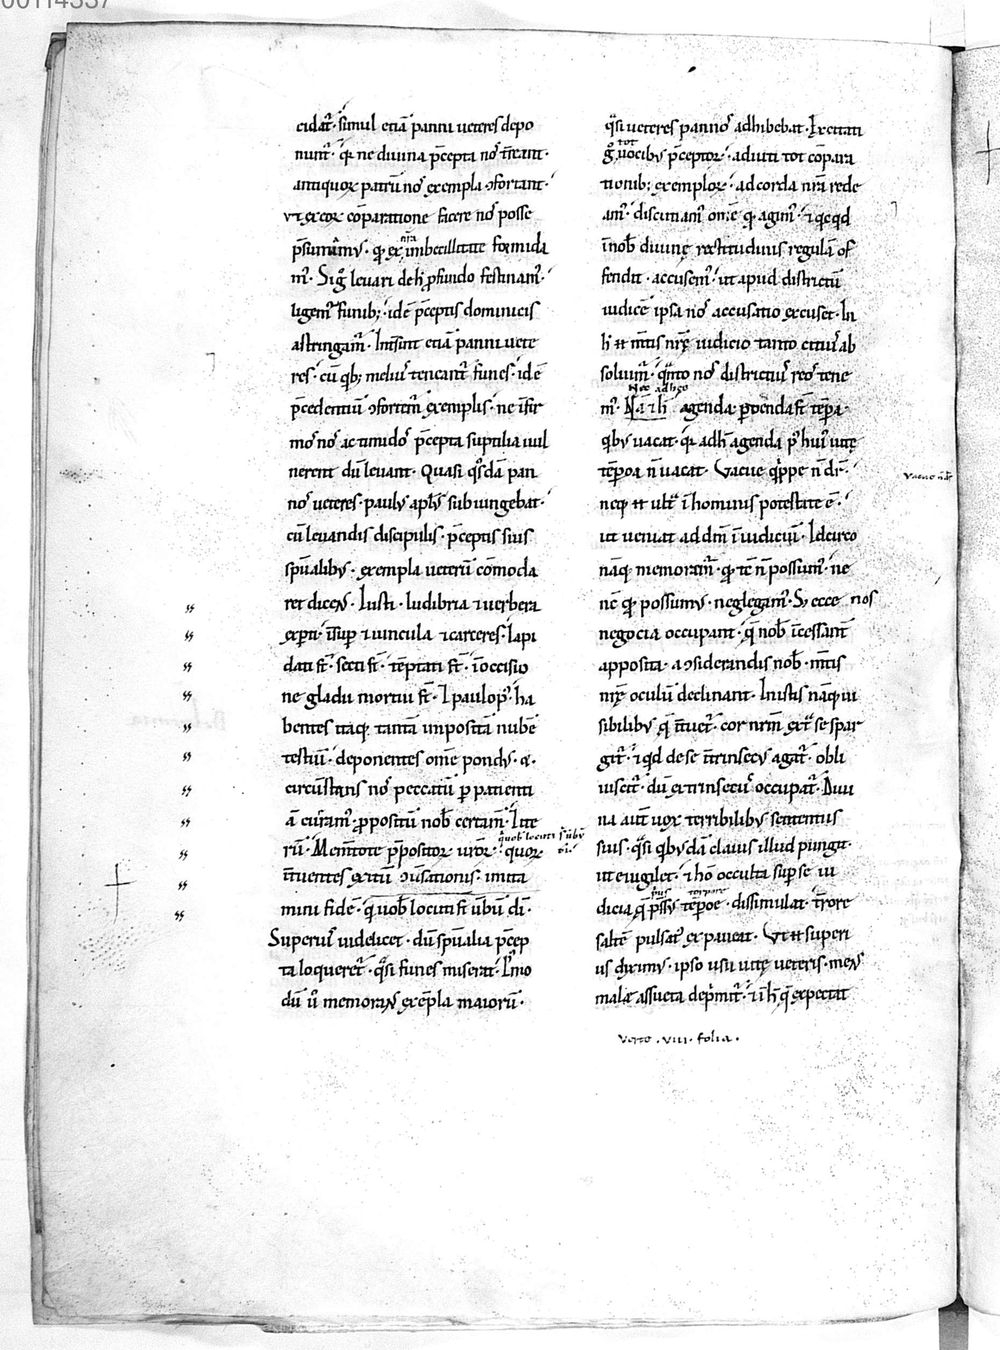 00114337
cidat᷒· simul etiā panni ueteres depo
nunt᷒· q̄a ne diuina p̄cepta nos t̄reant·
antiquoꝝ patrū nos exempla ꝯfortant·
ut ex eoꝝ cōparatione facere nos posse
p̄sumam᷒· qd ex nr̄a imbecillitate formida
m᷒· Sic g̊ leuari de h̄ p̄fundo festinam᷒·
ligem᷒ funib;· id ē p̄ceptis dominicis
astringam᷒· Int̄sint etiā panni uete
res· cū qb; meli᷒ teneant᷒ funes· id ē
p̄cedentiū ꝯfortem᷒ exemplis· ne īfir
mos nos ac timidos p̄cepta suptilia uul
nerent dū leuant· Quasi q̊sdā pan
nos ueteres· paulus apl̄s subiungebat·
cū leuandis discipulis· p̄ceptis suis
sp̄ualibus· exempla ueterū cōmoda
ret dicens· Iusti· ludibria ⁊ uerbera
exp̄ti· īsup ⁊ uincula ⁊ carceres· lapi
dati st̄· secti st̄· tēptati st̄· ī occisio
ne gladii mortui st̄· I paulo p᷒· ha
bentes itaq; tantā impositā nubē
testiū· deponentes om̄e pondus· &·
circūstans nos peccatū p patienti
ā curam᷒· p̄positū nob̄ certam̄· Ite
rū· Mem̄tote p̄positoꝝ uroꝝ· quoꝝ
q̄ uob̄ locuti s̄ ūbū
di·
t̄uentes exitū ꝯuersationis· imita
mini fidē· q̄ uob̄ locuti st̄ ūbū di·
Superi᷒ uidelicet· dū sp̄ualia p̄cep
ta loqueret᷒· q̄si funes miserat· P̄mo
dū ů memorans exēpla maiorū·
q̄si ueteres pannos adhibebat· Excitati
g̊ tot uocibus p̄ceptoꝝ· adiuti tot cōpara
tionib; exemploꝝ· ad corda nr̄a rede
am᷒· discutiam᷒ om̄e qd agim᷒· ⁊ qcqd
ī nob̄ diuinę rectitudinis regulā of
fendit· accusem᷒· ut apud districtū
iudicē ipsa nos accusatio excuset· In
h̄ ēt m̄tis nr̄ę iudicio tanto citi᷒ ab
soluim᷒· q̄nto nos districti᷒ reos tene
m᷒· Nec ad hęc
Nā ⁊ h̄ agenda p̄petenda st̄ tēpa·
qbus uacat· q̄a ad h̄ agenda p᷒ hui᷒ uitę
tēpora n̄ uacat· Vacue q̄ppe n̄ dr̄·
Vacue n̄ dr̄
neq; ēt ult̄ ī hominis potestate ē·
ut ueniat ad dm̄ ī iudiciū· Idcirco
nāq; memoram᷒· qd tē n̄ possum᷒· ne
nc̄ qd possumus· neglegam᷒· S; ecce nos
negocia occupant· q̄ nob̄ īcessant᷒
apposita· a ꝯsiderandis nob̄· m̄tis
nr̄ę oculū declinant· In istis nāq; ui
sibilibus q̄ t̄uet᷒· cor nrm̄ ext̄ se spar
git᷒· ⁊ qd de se īt̄insecus agat᷒· obli
uiscit᷒· dū extrinsecus occupat᷒· Diui
na aut̄ uox terribilibus sententiis
suis· q̄si qbusdā clauis illud pungit·
ut euigilet· ⁊ hō occulta sup se iu
dicia q̄ p̄ssus tēpore· dissimulat· t̄rore
saltē pulsat᷒ expaueat· Vt ēt superi
us diximus· ipso usu uitę ueteris· mens
male assueta dep̄mit᷒· ⁊ ī h̄ q̄ expectat
Verte · viii · folia ·